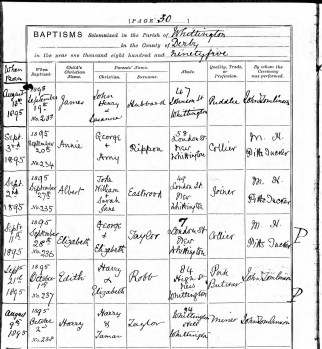 [PAGE 30]
BAPTISMS Solemnized in the Parish of Whittington
in the County of Derby
in the year one thousand eight hundred and ninetyfive
When Born
When Baptized.
Child's Christian Name.
Parents' Name.
Christian.
Surname.
Abode.
Quality, Trade, or Profession.
By whom the Ceremony was performed.
August
1895
1895
September
No. 233
James
John
Henry &
Susanna
Hubbard
47
London St
Whittington
Puddler
John Tomlinson
Sept.
3rd
1895
1895
September
20th
No. 234
Annie
George
&
Amy
Rippon
58
London St
New
Whittington
Collier
M. H.
Pitts Tucker
Sept.
2nd
1895
1895
September
27th
No. 235
Albert
William
&
Sarah
Jane
Eastwood
49
London St
New
Whittington
Joiner
M. H.
Pitts Tucker
Sept.
11th
1895
1895
September
28th
No. 236
Elizabeth
George
&
Elizabeth
Taylor
7,
London St
New
Whittington
Collier
M. H.
Pitts Tucker
P
Sept.
21st
1895
1895
October
1st
No. 237
Edith
Harry
&
Elizabeth
Robb
84
High St
New
Whittington
Pork
Butcher
John Tomlinson
P
August
9th
1895
1895
October
2nd
No. 238
Harry
Harry
&
Tamar
Taylor
94
Whittington
Hill
Whittington
Miner
John Tomlinson